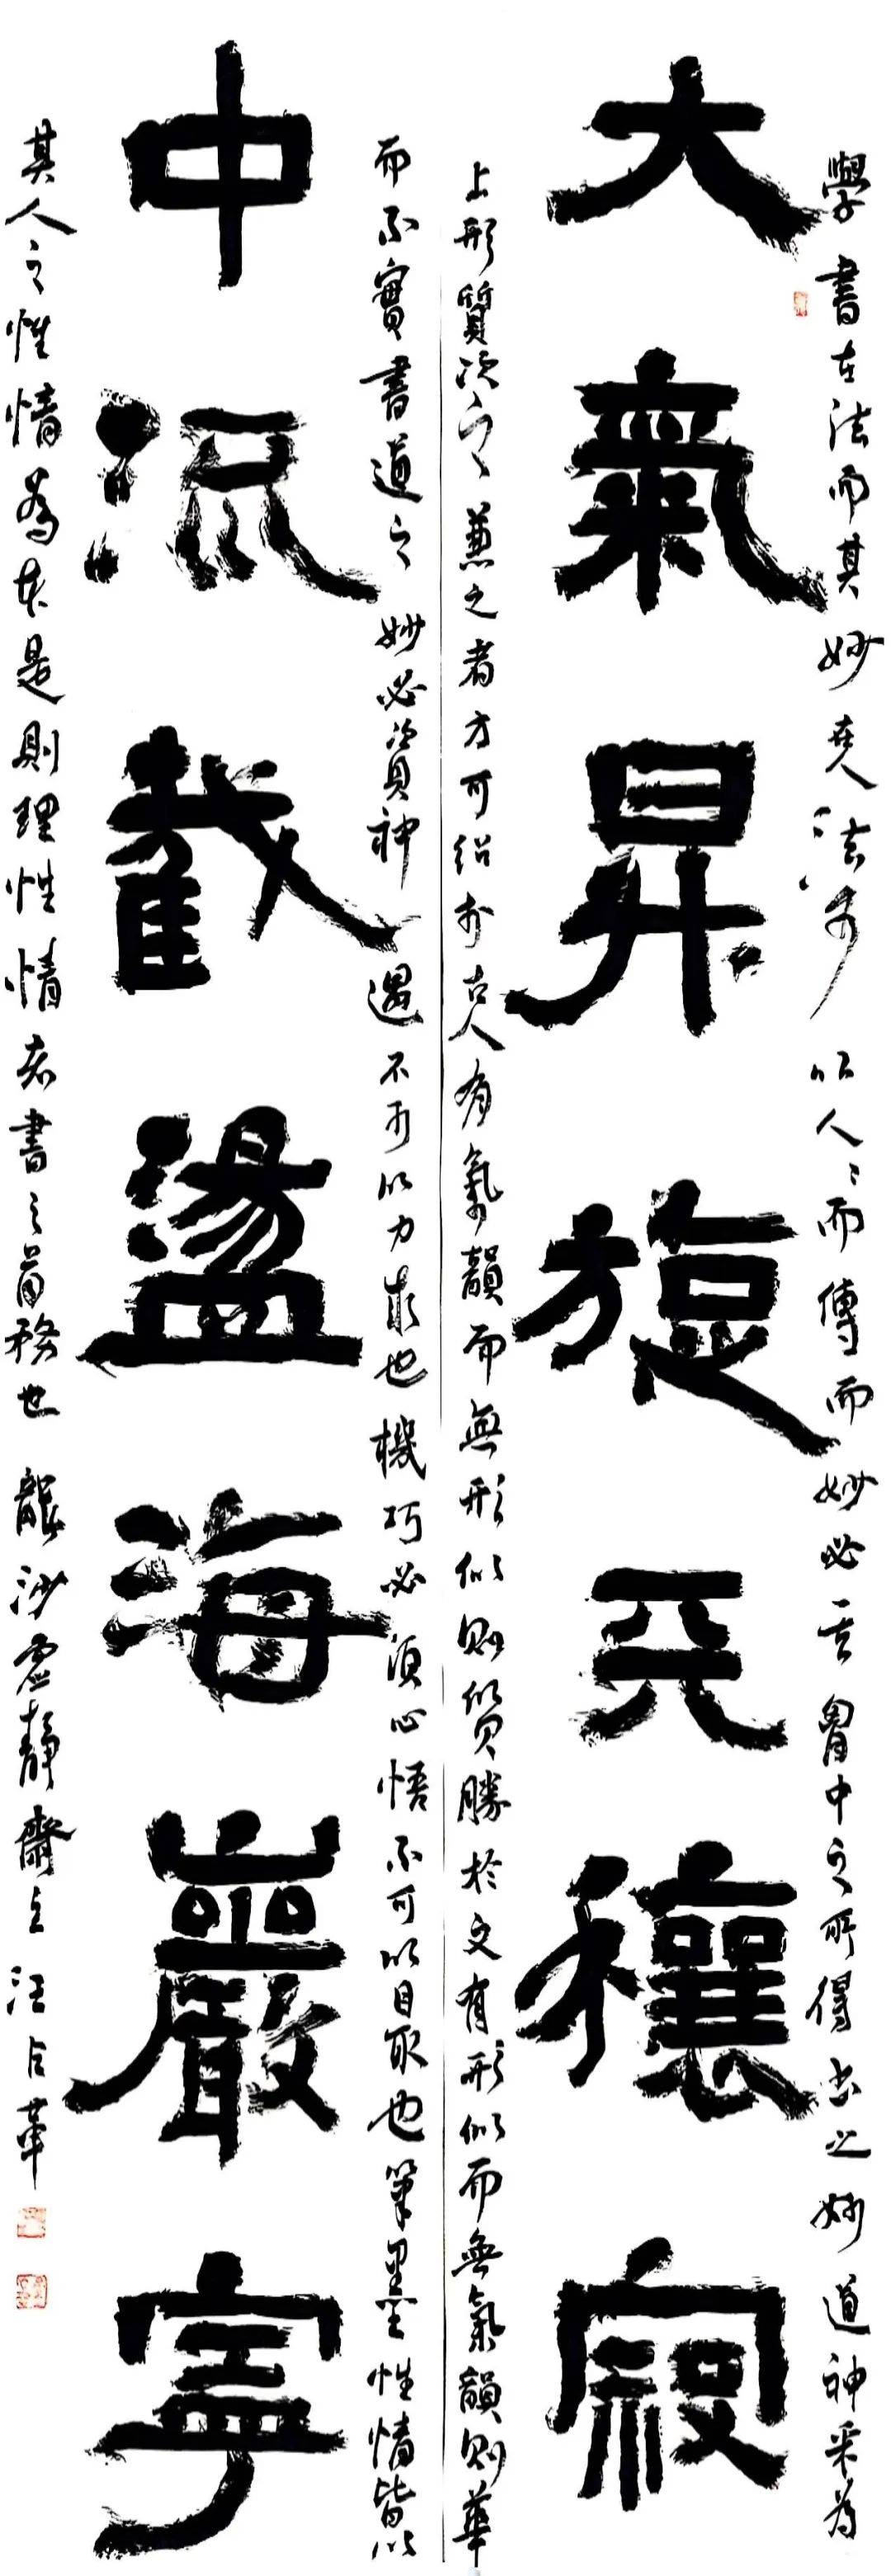 學書在法而其妙在人法可以人人而傳而妙必其胷中之所得書之妙道神采為
大氣昇旋天穰寂
上形質次之兼之者方可紹於古人有氣韻而無形似則質勝於文有形似而無氣韻則華
而不實書道之妙必資神遇不可以力求也機巧必須心悟不可以目取也筆墨性情皆以
中流截盪海巖寧
其人之性情為本是則理性情者書之首務也 龍沙虛靜齋主汪占華